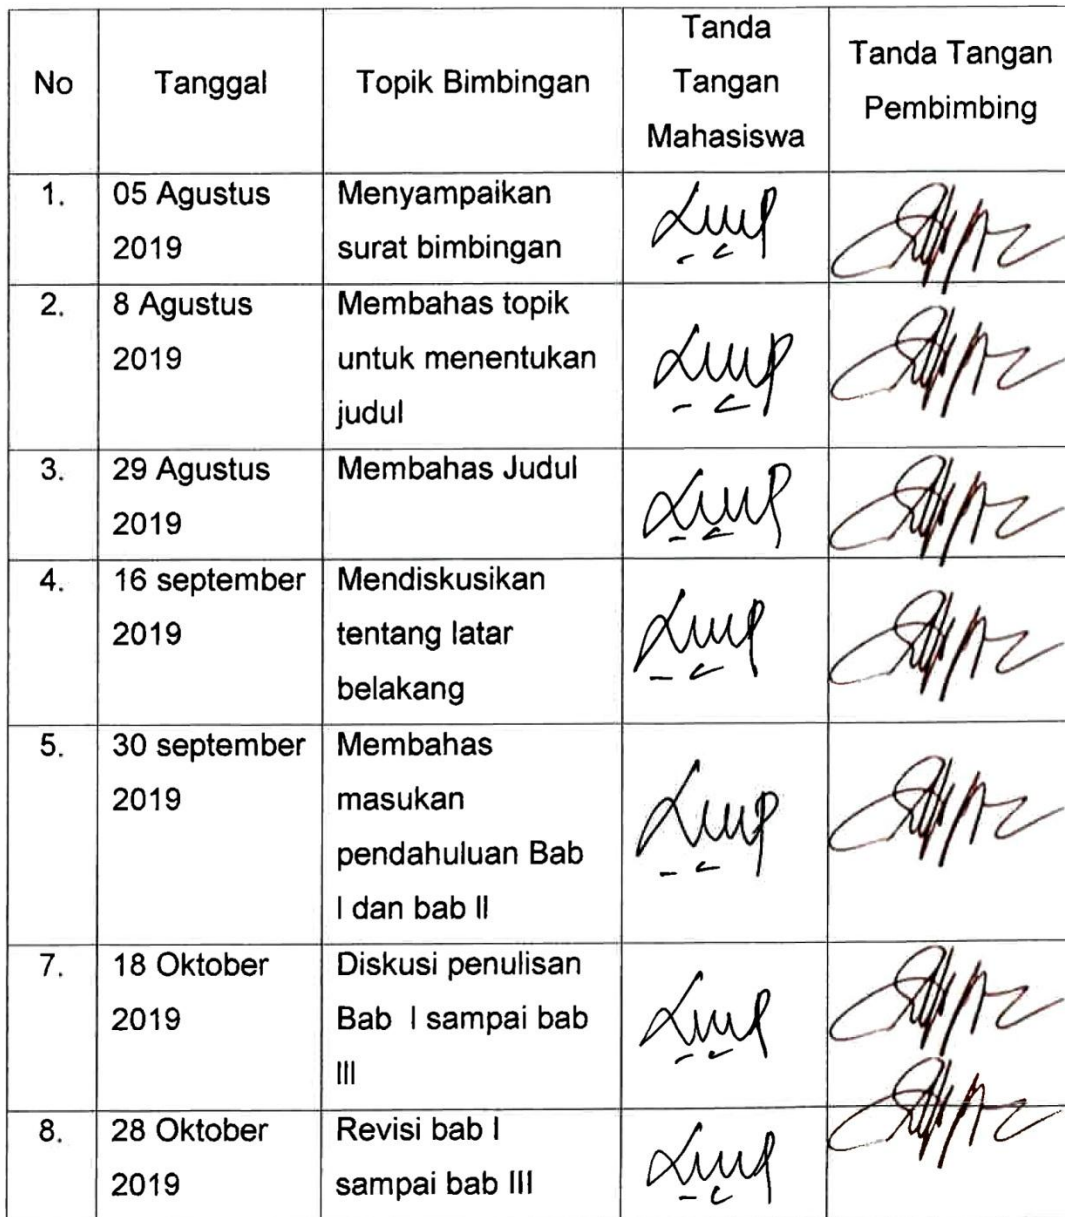 No
Tanggal
Topik Bimbingan
Tanda
Tangan
Mahasiswa
Tanda Tangan
Pembimbing
1.
05 Agustus
2019
Menyampaikan
surat bimbingan
2.
8 Agustus
2019
Membahas topik
untuk menentukan
judul
3.
29 Agustus
2019
Membahas Judul
4.
16 september
2019
Mendiskusikan
tentang latar
belakang
5.
30 september
2019
Membahas
masukan
pendahuluan Bab
I dan bab II
7.
18 Oktober
2019
Diskusi penulisan
Bab I sampai bab
III
8.
28 Oktober
2019
Revisi bab I
sampai bab III